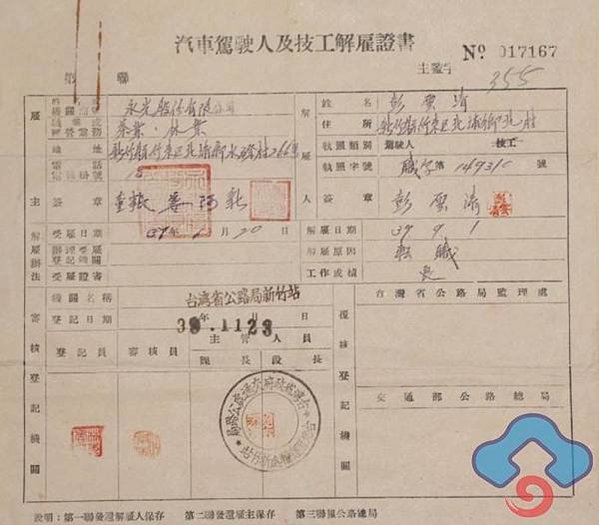 汽車駕駛人及技工解雇證書
主監字
Nº 017167
第 聯
355
雇 主
永光股份有限公司
茶業·林業
地址
電話
簽章
董振 姜阿新
解 雇 人
姓名 彭雲清
住所
執照類別 駕駛人 技工
執照字號 職字第 149310 號
簽章 彭雲清
解雇辦法
受雇日期
39年 月 20 日
辦理受雇登記機關
受雇證書
解雇日期 39 9 1
解雇原因 轉職
工作成績 良
審核登記機關
機關名稱 台灣省公路局新竹站
登記日期 年 月 日
39.11 23
登記員 審核員 主管人員
課長 段長
復核登記機關
台灣省公路局監理處
交通部公路總局
說明：第一聯發還解雇人保存 第二聯發還雇主保存 第三聯報公路總局